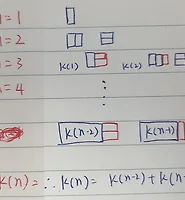 = 1
= 2
= 3 K(1) K(2)
= 4
K(n-2) K(n-1)
K(n) = ∴ K(n) = K(n-2) + K(n-